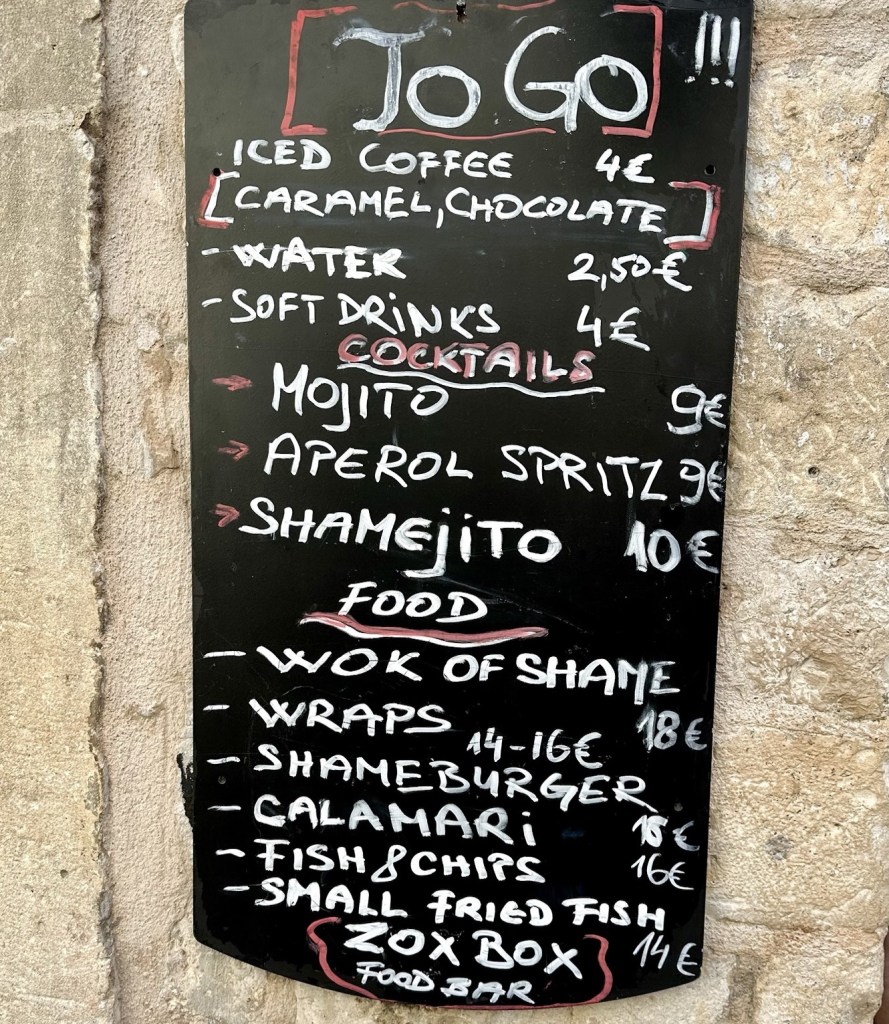 To Go !!!
ICED COFFEE 4€
[CARAMEL, CHOCOLATE]
- WATER 2,50€
- SOFT DRINKS 4€
COCKTAILS
→ MOJITO 9€
→ APEROL SPRITZ 9€
→ SHAMEjiTO 10€
FOOD
- WOK OF SHAME
18€
- WRAPS
14-16€
- SHAMEBURGER
- CALAMARi
- FISH & CHIPS 16€
- SMALL FRIED FISH
14€
ZOX BOX
FOOD BAR